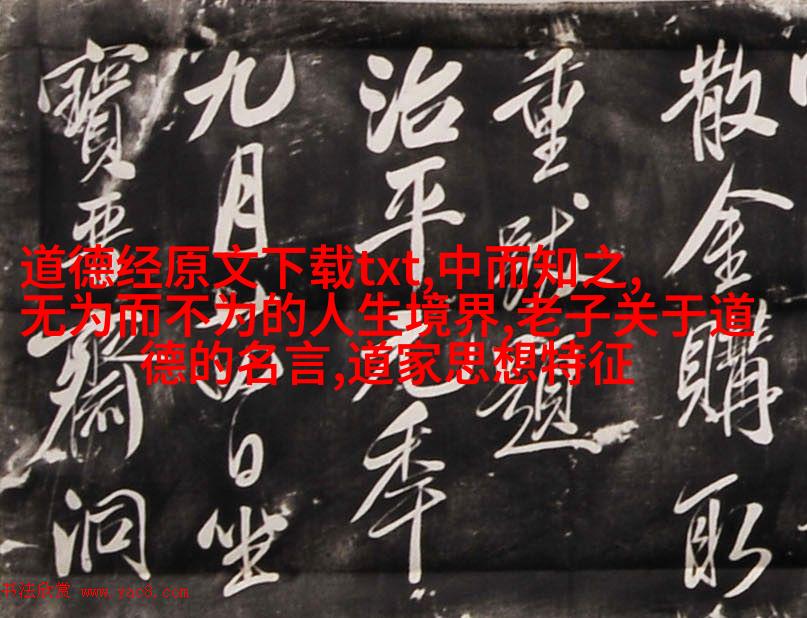 散金購取
重跋題
治平元年
九月日坐
寶晋齋洞
道德经原文下载txt,中而知之,
无为而不为的人生境界,老子关于道
德的名言,道家思想特征
书法欣赏 www.yac8.com